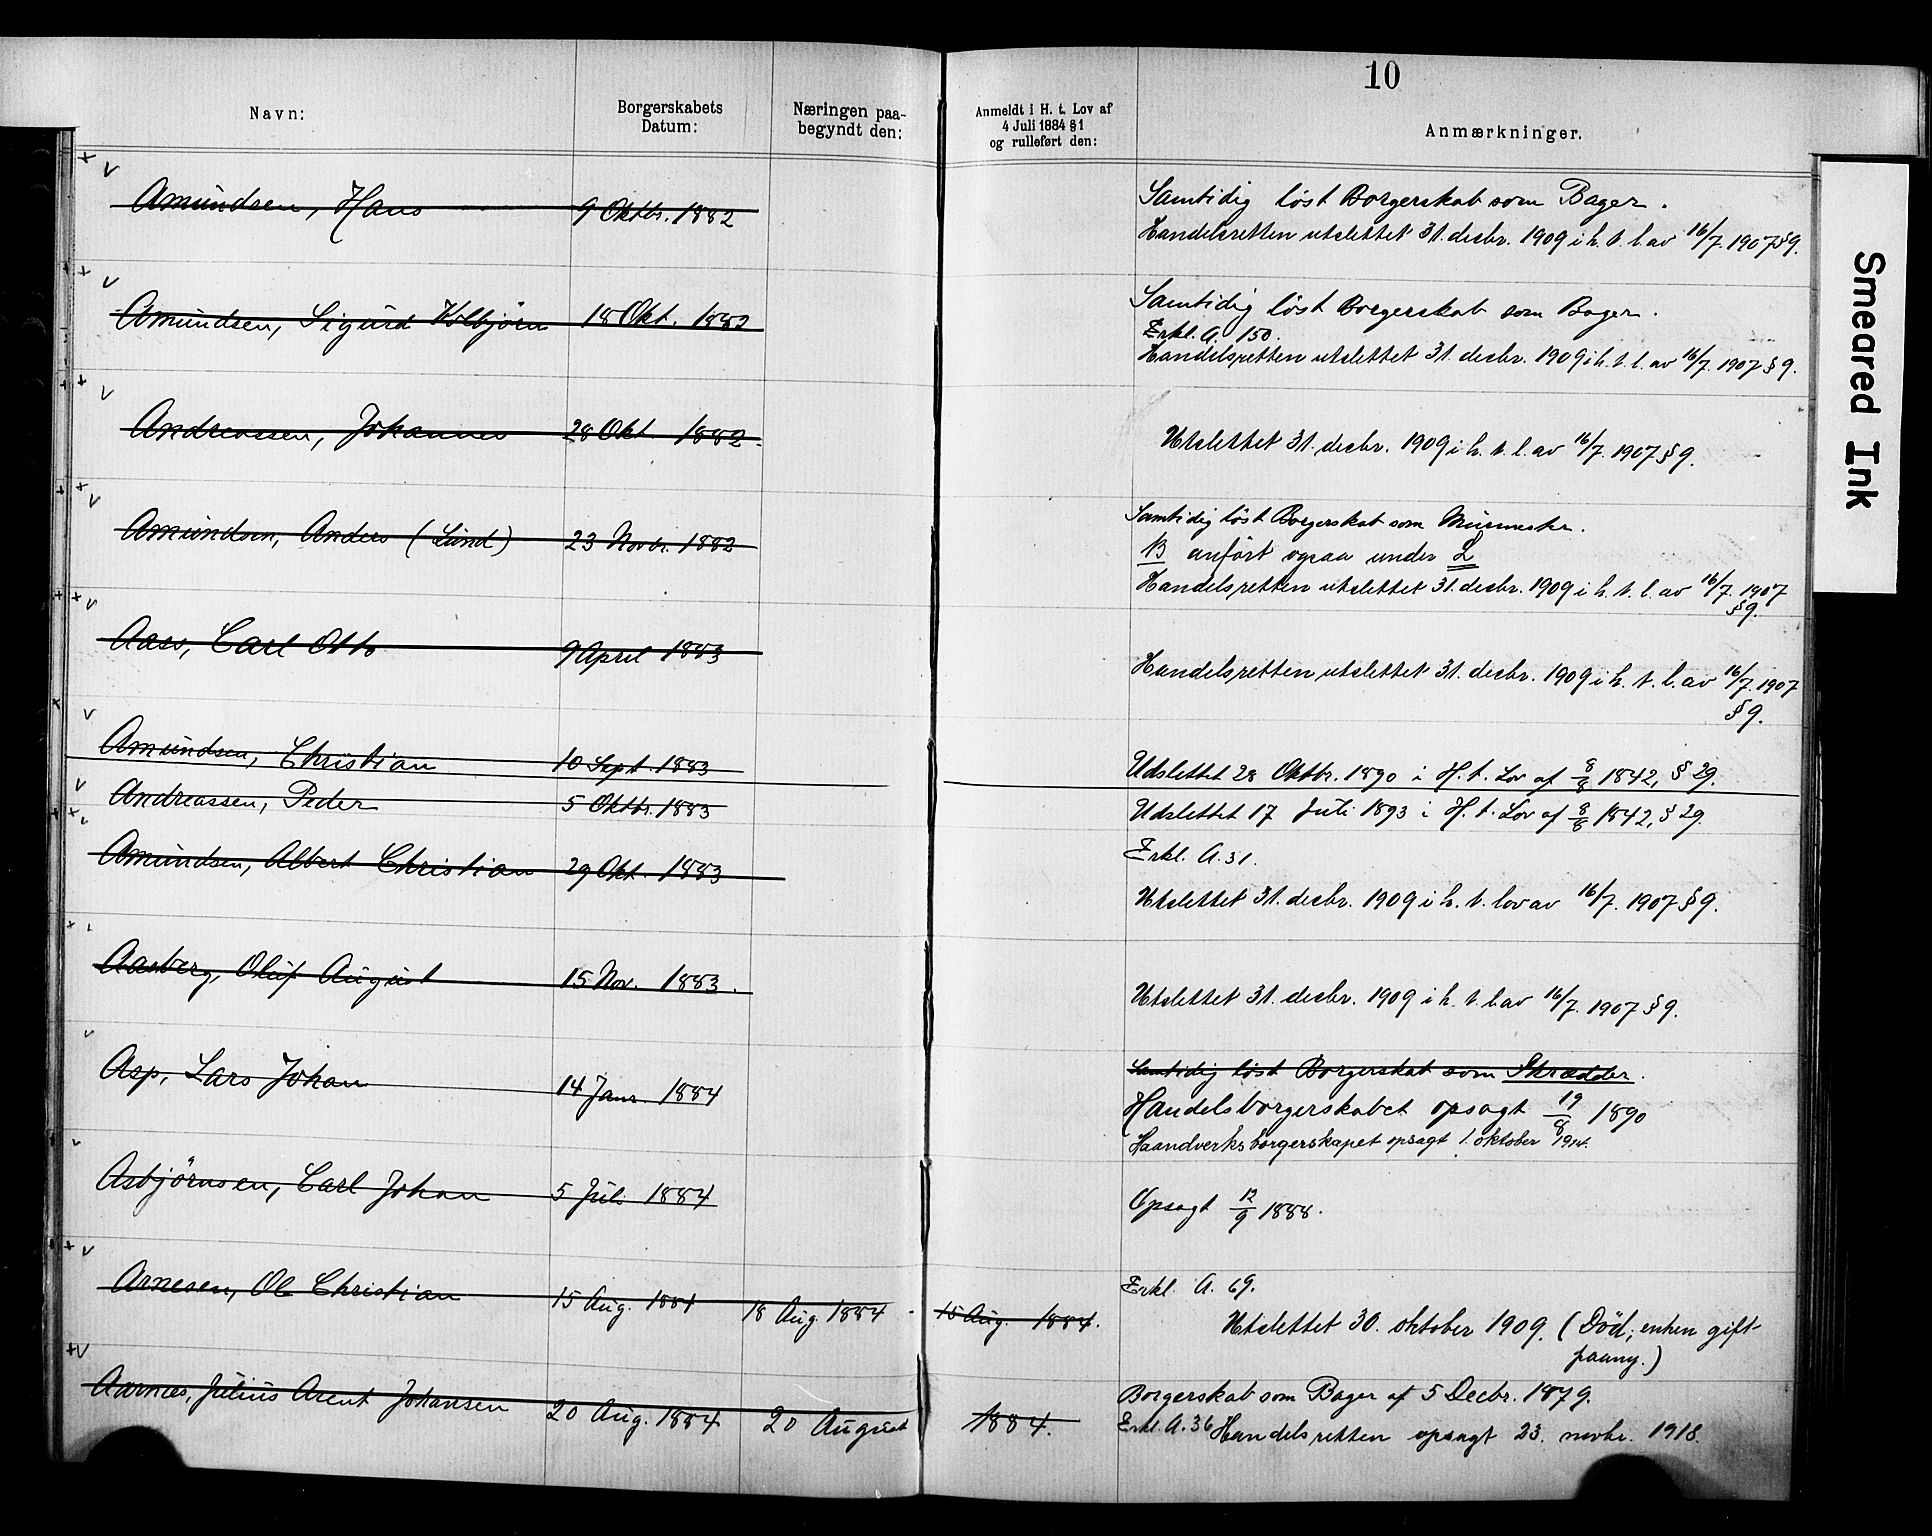 10
Navn:
Borgerskabets Datum:
Næringen paa-
begyndt den:
Anmeldt i H. t. Lov af
4 Juli 1884 §1
og rulleført den:
Anmærkninger.
Smeared Ink
Amundsen, Hans 9 Oktbr. 1882 Samtidig løst Borgerskab som Bager.
Handelsretten utslettet 31. decbr. 1909 i h. t. l. av 16/7. 1907 §9.
Amundsen, Sigurd Kolbjörn 18 Okt. 1882 Samtidig løst Borgerskab som Bager.
Erkl. A. 150.
Handelsretten utslettet 31. decbr. 1909 i h. t. l. av 16/7. 1907 §9.
Andreassen, Johannes 28 Okt. 1882. Utslettet 31. decbr. 1909 i h. t. l. av 16/7. 1907 §9.
Amundsen, Anders (Lund) 23 Novbr. 1882 Samtidig løst Borgerskab som Murmester.
B anført ogsaa under L
Handelsretten utslettet 31. decbr. 1909 i h. t. l. av 16/7. 1907
§9.
Aass, Carl Otto 9 April 1883 Handelsretten utslettet 31. decbr. 1909 i h. t. l. av 16/7. 1907
§9.
Amundsen, Christian 10 Sept. 1883 Udslettet 28 Oktbr. 1890 i H. t. Lov af 8/8 1842, § 29.
Andreassen, Peder 5 Oktbr. 1883 Udslettet 17 Juli 1893 i H. t. Lov af 8/8 1842, § 29.
Erkl. A. 31.
Amundsen, Albert Christian 29 Okt. 1883 Utslettet 31. decbr. 1909 i h. t. lov av 16/7. 1907 §9.
Aasberg, Oluf August 15 Nov. 1883. Utslettet 31. decbr. 1909 i h. t. l. av 16/7. 1907 §9.
Asp, Lars Johan 14 Janr. 1884 Samtidig løst Borgerskab som Skrædder.
Handelsborgerskabet opsagt 19/8 1890
Haandverksborgerskapet opsagt 1. oktober 1914.
Asbjörnsen, Carl Johan 5 Juli 1884 Opsagt 12/9 1888.
Arnesen, Ole Christian 15 Aug. 1884 18 Aug. 1884 15 Aug. 1884. Erkl. A. 69.
Utslettet 30. oktober 1909. (Död; enken gift
paany.)
Aarnæs, Julius Arent Johansen 20 Aug. 1884 20 August 1884. Borgerskab som Bager af 5 Decbr. 1879.
Erkl. A. 36 Handelsretten opsagt 23. novbr. 1918.